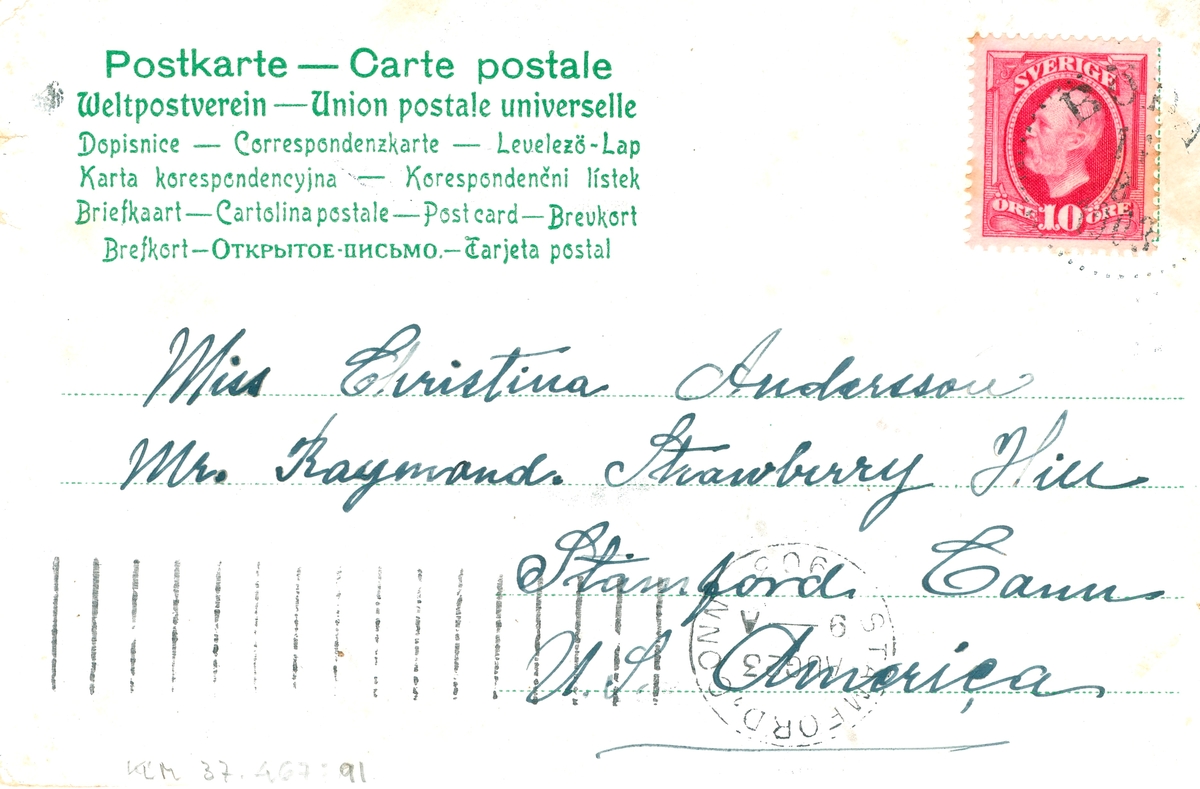 Postkarte — Carte postale
Weltpostverein — Union postale universelle
Dopisnice — Correspondenzkarte — Levelező-Lap
Karta korespondencyjna — Korespondenčni lístek
Briefkaart — Cartolina postale — Post card — Brevkort
Brefkort — ОТКРЫТОЕ-ПИСЬМО. — Tarjeta postal
SVERIGE
ÖRE 10 ÖRE
Miss Christina Andersson
Mr. Raymond. Strawberry Hill
Stamford. Conn.
U.S. America
STAMFORD, CONN.
AUG 23
9 A
KLM 37.467:91